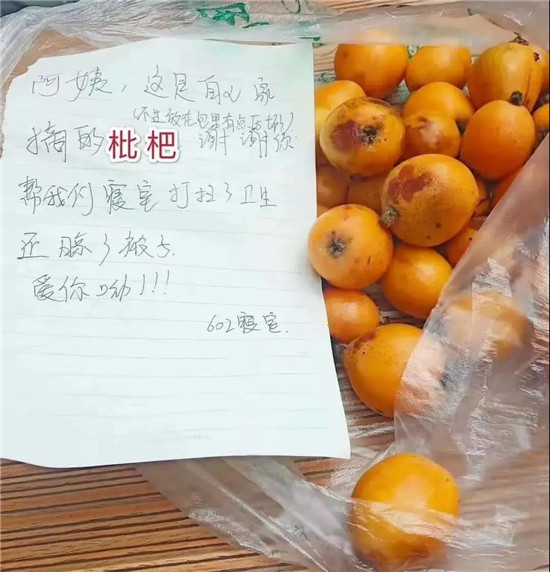 阿姨，这是自己家
(不过放在包里有点压坏)
摘的枇杷 谢谢你
帮我们寝室打扫了卫生
还晾了被子
爱你呦!!!
602寝室.